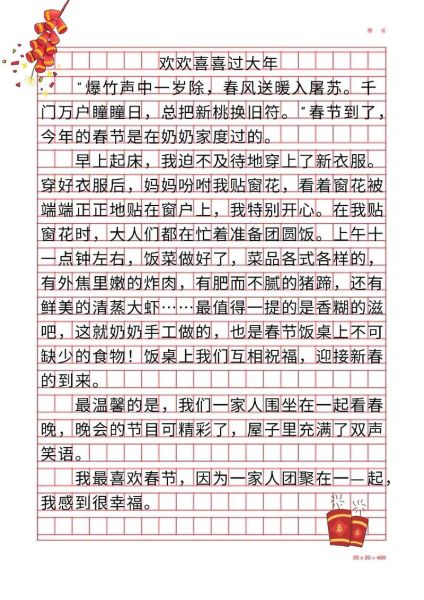 欢欢喜喜过大年
“爆竹声中一岁除，春风送暖入屠苏。千
门万户瞳瞳日，总把新桃换旧符。”春节到了，
今年的春节是在奶奶家度过的。
早上起床，我迫不及待地穿上了新衣服。
穿好衣服后，妈妈吩咐我贴窗花，看着窗花被
端端正正地贴在窗户上，我特别开心。在我贴
窗花时，大人们都在忙着准备团圆饭。上午十
一点钟左右，饭菜做好了，菜品各式各样的，
有外焦里嫩的炸肉，有肥而不腻的猪蹄，还有
鲜美的清蒸大虾……最值得一提的是香糊的滋
吧，这就奶奶手工做的，也是春节饭桌上不可
缺少的食物！饭桌上我们互相祝福，迎接新春
的到来。
最温馨的是，我们一家人围坐在一起看春
晚，晚会的节目可精彩了，屋子里充满了双声
笑语。
我最喜欢春节，因为一家人团聚在一—起，
我感到很幸福。
20 x 20 = 400